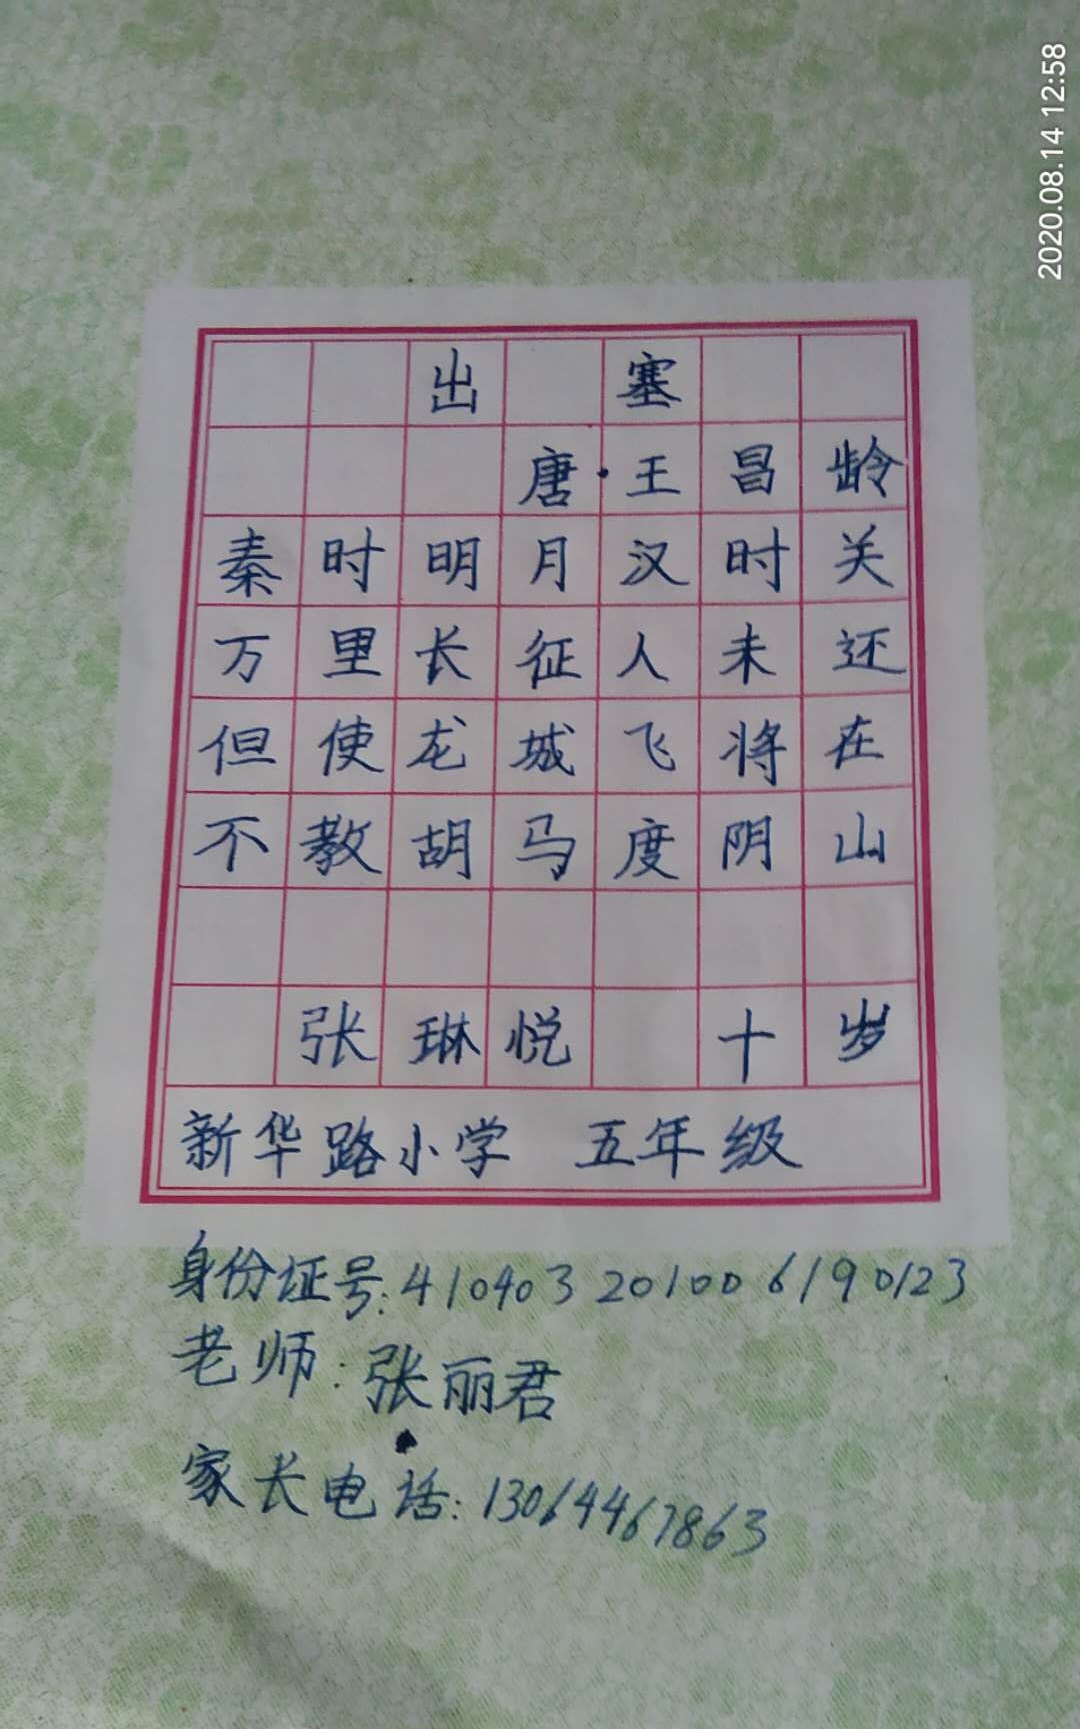 2020.08.14 12:58
出塞
唐·王昌龄
秦时明月汉时关
万里长征人未还
但使龙城飞将在
不教胡马度阴山
张琳悦 十岁
新华路小学 五年级
身份证号:410403201006190123
老师:张丽君
家长电话:13064467863